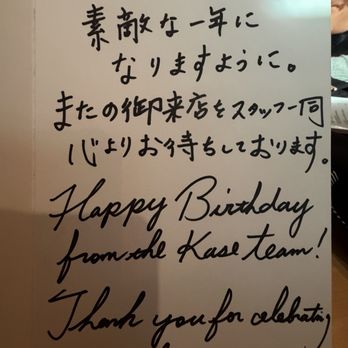 素敵な一年に
なりますように。
またの御来店をスタッフ一同
心よりお待ちしております。
Happy Birthday
from the Kase team!
Thank you for celebrating